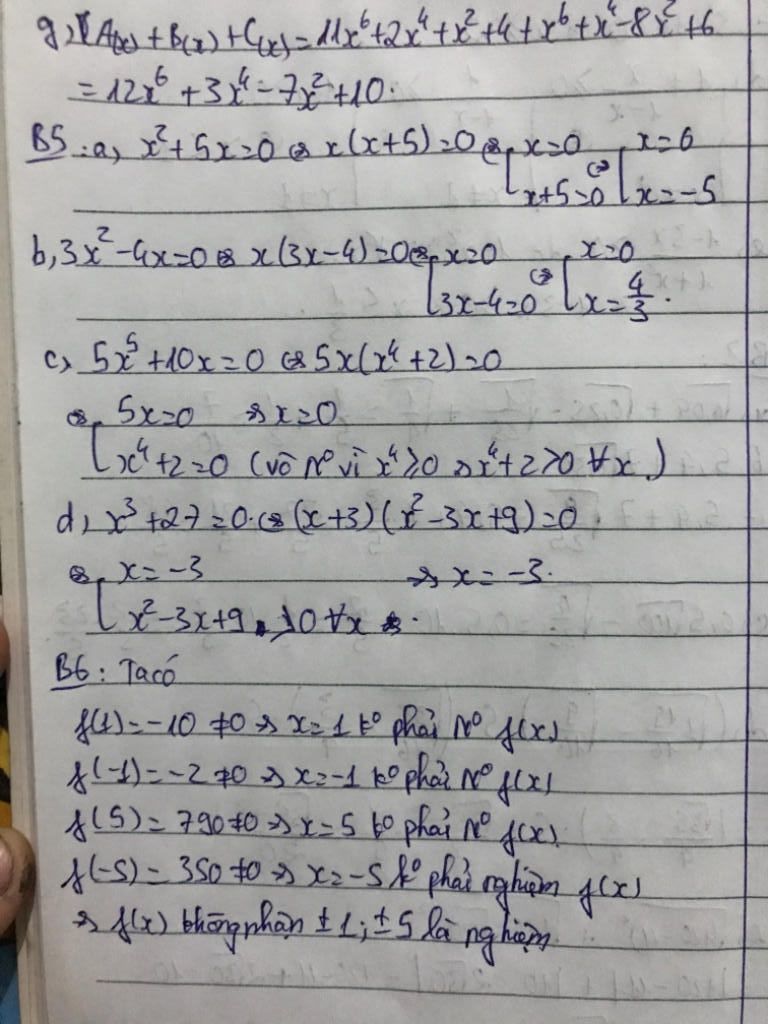 g) A(x) + B(x) + C(x) = 11x⁶ + 2x⁴ + x² + 4 + x⁶ + x⁴ - 8x² + 6
= 12x⁶ + 3x⁴ - 7x² + 10.
B5: a, x² + 5x = 0 ⇔ x(x+5) = 0 ⇔ [x = 0 ⇔ [x = 0
x+5 = 0 x = -5
b, 3x² - 4x = 0 ⇔ x(3x-4) = 0 ⇔ [x = 0 ⇔ [x = 0
3x-4 = 0 x = 4/3.
c, 5x⁵ + 10x = 0 ⇔ 5x(x⁴ + 2) = 0
⇔ [5x = 0 ⇒ x = 0
x⁴ + 2 = 0 (vô n⁰ vì x⁴ ≥ 0 ⇒ x⁴ + 2 > 0 ∀x.)
d, x³ + 27 = 0. ⇔ (x+3)(x² - 3x + 9) = 0
⇔ [x = -3 ⇒ x = -3.
x² - 3x + 9 > 0 ∀x.
B6: Ta có
f(1) = -10 ≠ 0 ⇒ x = 1 k⁰ phải n⁰ f(x)
f(-1) = -2 ≠ 0 ⇒ x = -1 k⁰ phải n⁰ f(x)
f(5) = 790 ≠ 0 ⇒ x = 5 k⁰ phải n⁰ f(x)
f(-5) = 350 ≠ 0 ⇒ x = -5 k⁰ phải nghiệm f(x)
⇒ f(x) không nhận ±1; ±5 là nghiệm